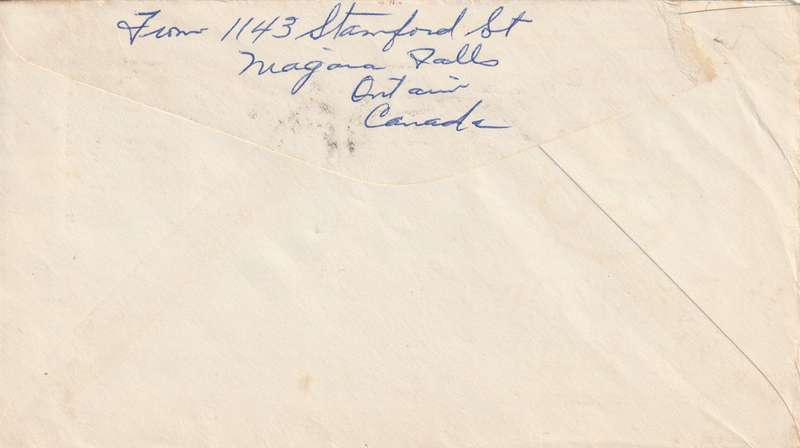 From 1143 Stamford St
Niagara Falls
Ontario
Canada